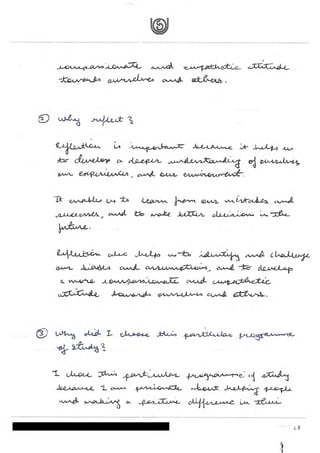 compassionate and empathetic attitude
towards ourselves and others.
② Why reflect ?
Reflection is important because it helps us
to develop a deeper understanding of ourselves,
our experiences, and our environment.
It enables us to learn from our mistakes and
successes, and to make better decisions in the
future.
Reflection also helps us to identify and challenge
our biases and assumptions, and to develop
a more compassionate and empathetic
attitude towards ourselves and others.
③ Why did I choose this particular programme
of study?
I chose this particular programme of study
because I am passionate about helping people
and making a positive difference in their